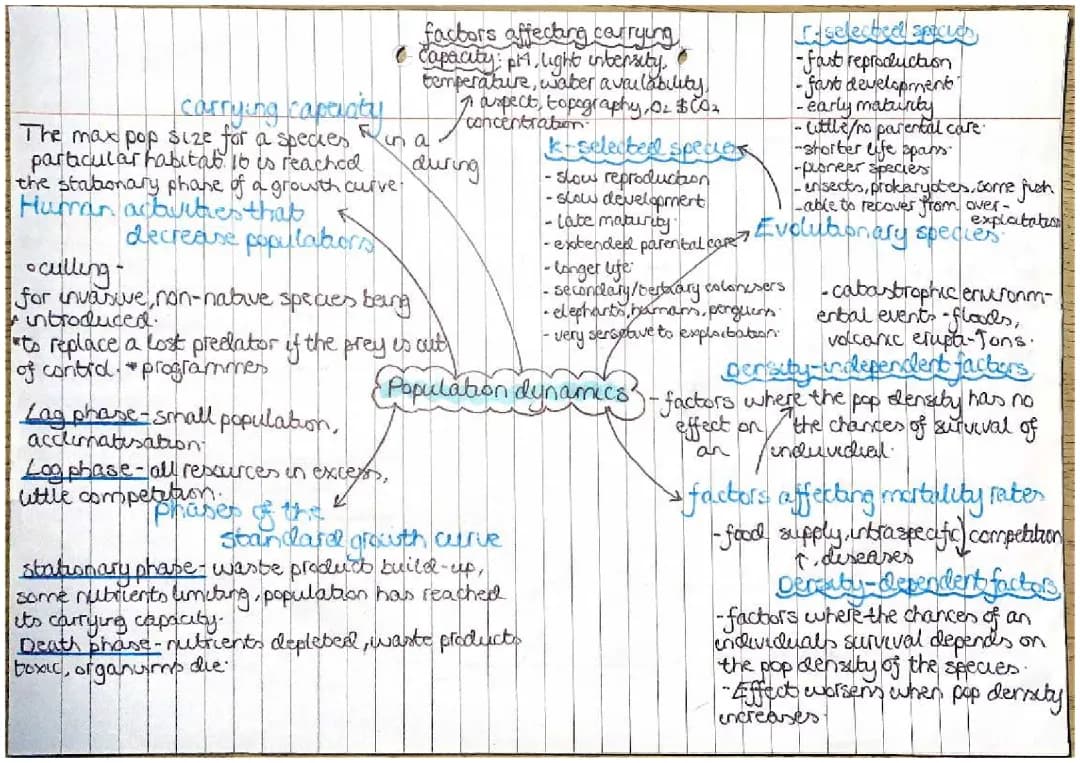 factors affecting carrying
capacity: pH, light intensity,
temperature, water availability,
aspect, topography, O2 & CO2
concentration.
carrying capacity
The max pop size for a species in a
particular habitat. It is reached during
the stationary phase of a growth curve.
Human activities that
decrease populations
culling -
for invasive, non-native species being
introduced.
*to replace a lost predator if the prey is out
of control. * programmes
Lag phase - small population,
acclimatisation.
Log phase - all resources in excess,
little competition.
phases of the
standard growth curve
stationary phase - waste product build-up,
some nutrients limiting, population has reached
its carrying capacity.
Death phase - nutrients depleted, waste products
toxic, organisms die.
Population dynamics
k-selected species
- slow reproduction
- slow development
- late maturity.
- extended parental care
- longer life.
- secondary/tertiary colonisers
- elephants, humans, penguins.
- very sensitive to exploitation.
r-selected species
- fast reproduction
- fast development
- early maturity
- little/no parental care.
- shorter life spans.
- pioneer species
- insects, prokaryotes, some fish
- able to recover from over-
exploitation
Evolutionary species.
- catastrophic environm-
ental events - floods,
volcanic erupta-Tons.
Density-independent factors
- factors where the pop density has no
effect on the chances of survival of
an individual.
factors affecting mortality rates
- food supply, intraspecific competition
, diseases
Density-dependent factors
- factors where the chances of an
individuals survival depends on
the pop density of the species.
- Effect worsens when pop density
increases.